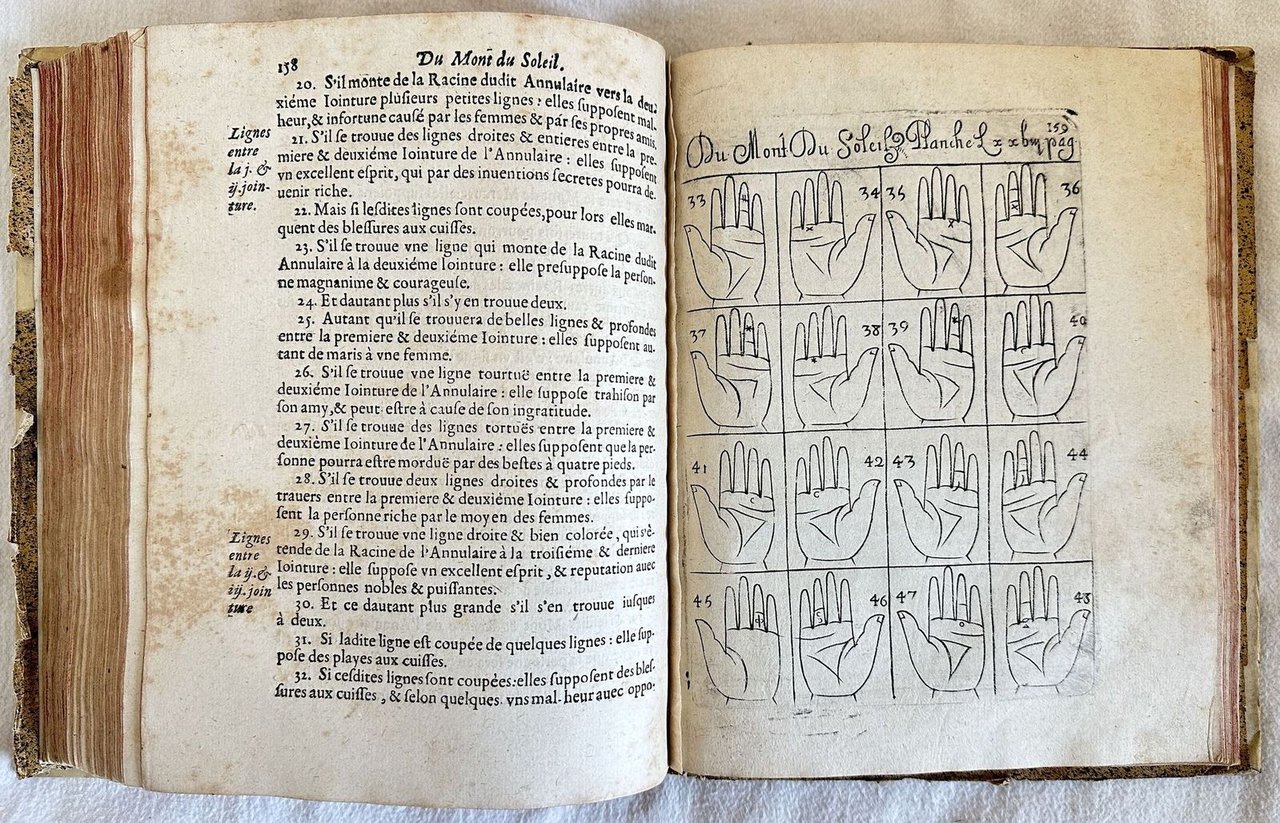 158
Du Mont du Soleil.
20. S'il monte de la Racine dudit Annulaire vers la deu-
xiéme Iointure plusieurs petites lignes : elles supposent mal-
heur, & infortune causé par les femmes & par ses propres amis.
21. S'il se trouue des lignes droites & entieres entre la pre-
miere & deuxiéme Iointure de l'Annulaire : elles supposent
vn excellent esprit, qui par des inuentions secretes pourra de-
uenir riche.
22. Mais si lesdites lignes sont coupées, pour lors elles mar-
quent des blessures aux cuisses.
23. S'il se trouue vne ligne qui monte de la Racine dudit
Annulaire à la deuxiéme Iointure : elle presuppose la person-
ne magnanime & courageuse.
24. Et dautant plus s'il s'y en trouue deux.
25. Autant qu'il se trouuera de belles lignes & profondes
entre la premiere & deuxiéme Iointure : elles supposent au-
tant de maris à vne femme.
26. S'il se trouue vne ligne tourtuë entre la premiere &
deuxiéme Iointure de l'Annulaire : elle suppose trahison par
son amy, & peut estre à cause de son ingratitude.
27. S'il se trouue des lignes tortuës entre la premiere &
deuxiéme Iointure de l'Annulaire : elles supposent que la per-
sonne pourra estre morduë par des bestes à quatre pieds.
28. S'il se trouue deux lignes droites & profondes par le
trauers entre la premiere & deuxiéme Iointure : elles suppo-
sent la personne riche par le moyen des femmes.
29. S'il se trouue vne ligne droite & bien colorée, qui s'é-
tende de la Racine de l'Annulaire à la troisiéme & derniere
Iointure : elle suppose vn excellent esprit, & reputation auec
les personnes nobles & puissantes.
30. Et ce dautant plus grande s'il s'en trouue iusques
à deux.
31. Si ladite ligne est coupée de quelques lignes : elle sup-
pose des playes aux cuisses.
32. Si cesdites lignes sont coupées : elles supposent des bles-
sures aux cuisses, & selon quelques vns mal-heur auec oppo-
Lignes
entre
la j. &
ij. join-
ture.
Lignes
entre
la ij. &
iij. join
ture
159
Du Mont Du Soleil Planche L x x pag
33
34
35
36
37
38
39
40
41
42
43
44
45
46
47
48